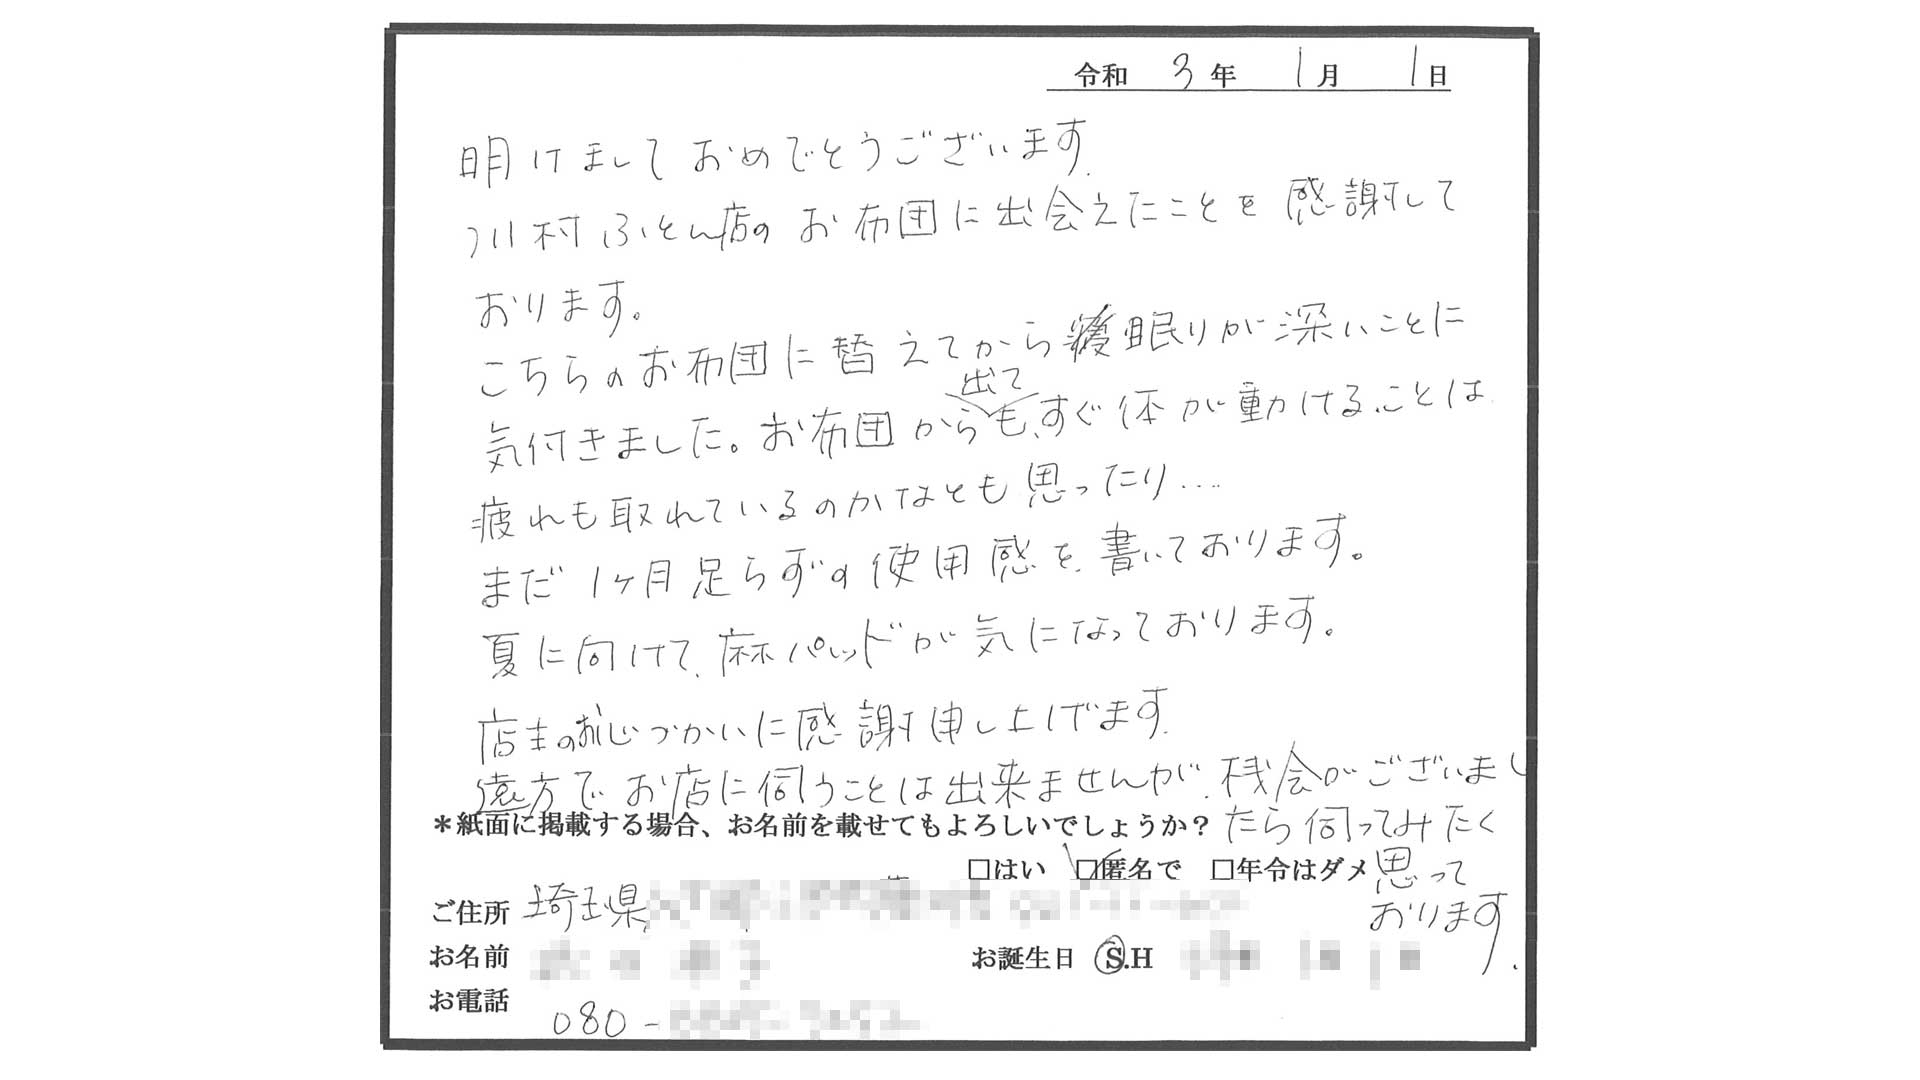 令和 3 年 1 月 1 日
明けましておめでとうございます.
川村ふとん店のお布団に出会えたことを感謝して
おります。
こちらのお布団に替えてから眠りが深いことに
気付きました。お布団から出ても、すぐ体が動けることは
疲れも取れているのかなとも思ったり....
まだ1ヶ月足らずの使用感を書いております。
夏に向けて、麻パッドが気になっております。
店主のお心づかいに感謝申し上げます.
遠方でお店に伺うことは出来ませんが、機会がございまし
たら伺ってみたく
思って
おります.
＊紙面に掲載する場合、お名前を載せてもよろしいでしょうか？
□はい ☑匿名で □年令はダメ
ご住所 埼玉県
お名前
お誕生日 S.H
お電話 080-